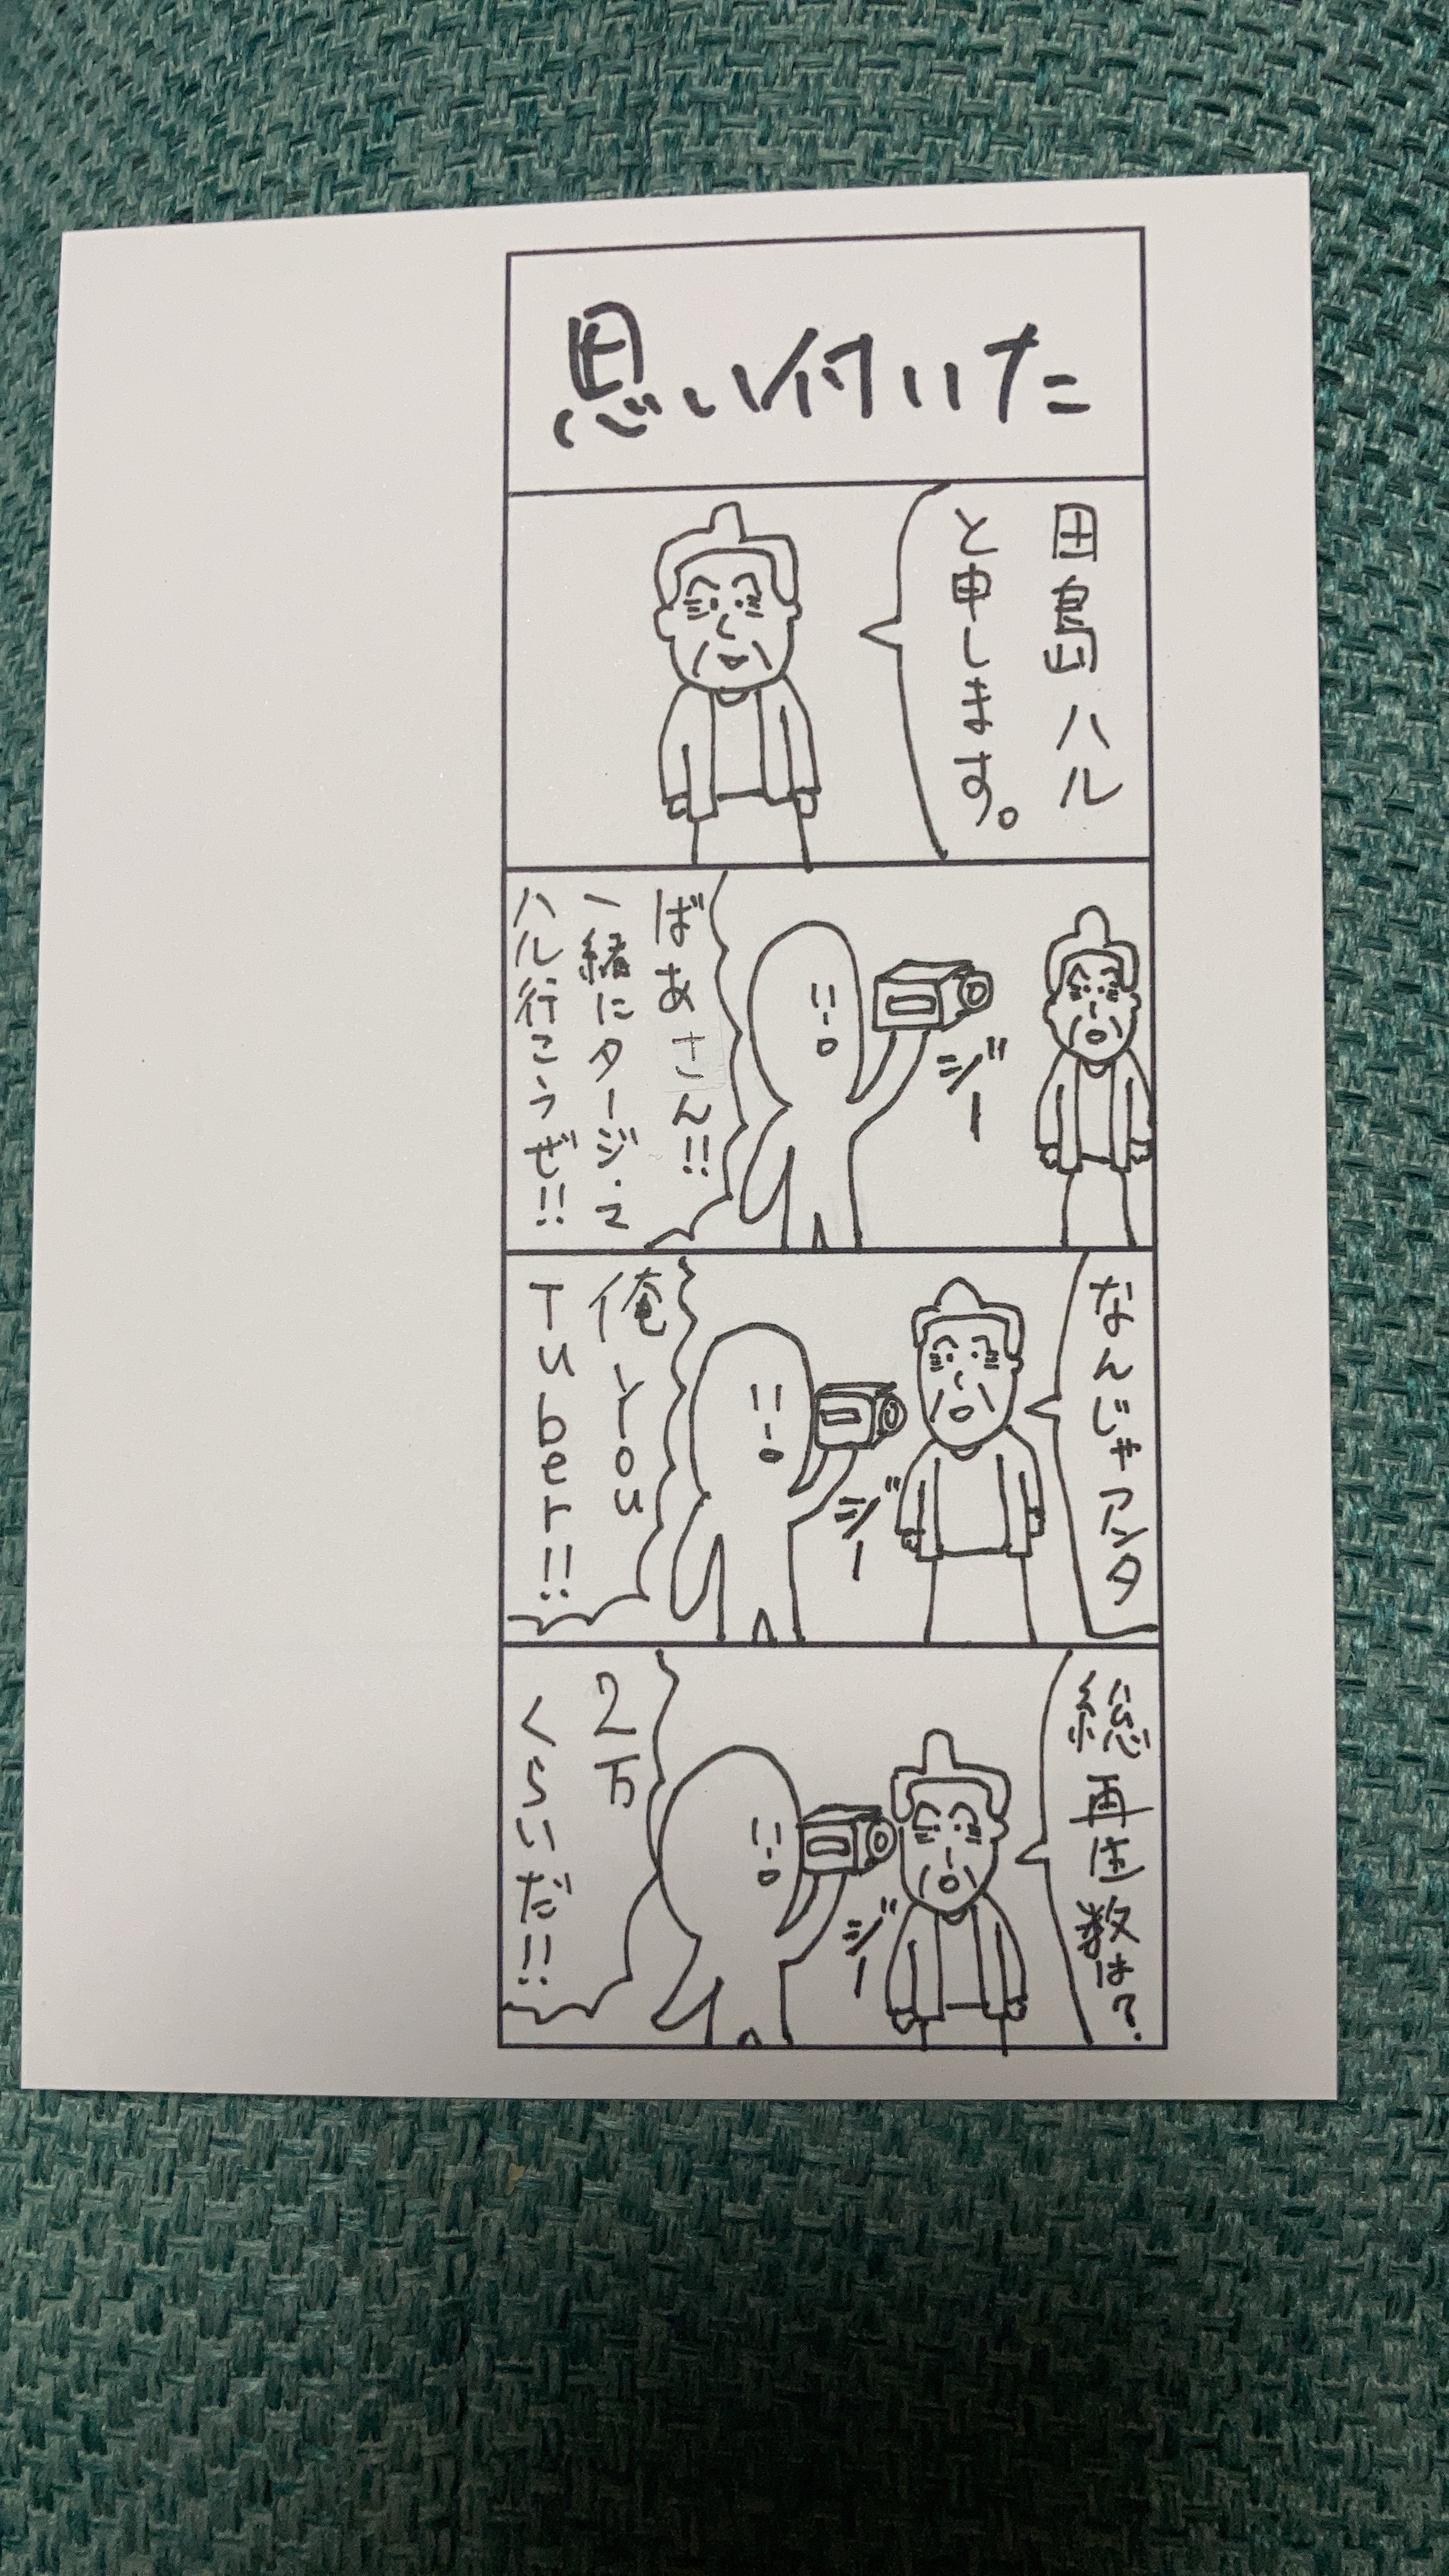 思い付いた
田島ハル
と申します。
ジー
ばあさん!!
一緒にタージ・マ
ハル行こうぜ!!
なんじゃアンタ
ジー
俺 You
Tuber!!
総再生数は?
ジー
2万
くらいだ!!